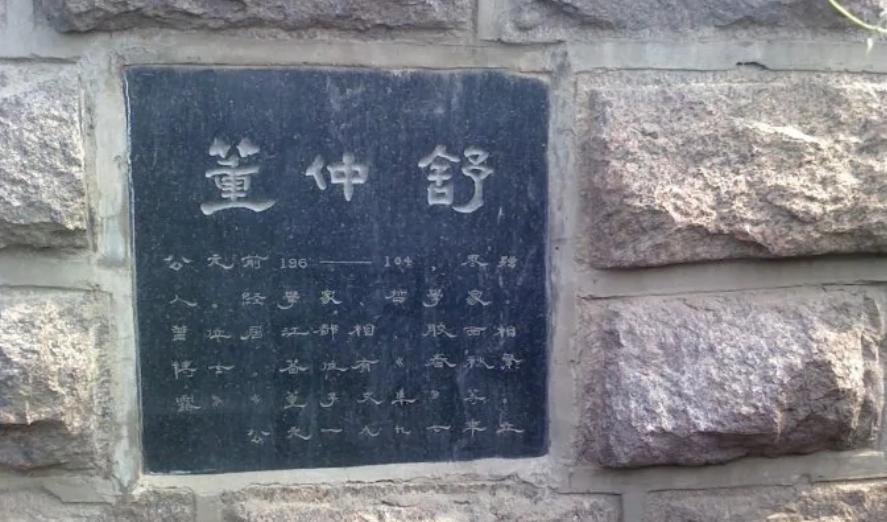 董仲舒
公元前196——104,枣强
人。经学家、哲学家.
曾位居江都相、胶西相
博士。著作有《春秋繁
露》、《董子文集》等.
公元一九九七年立